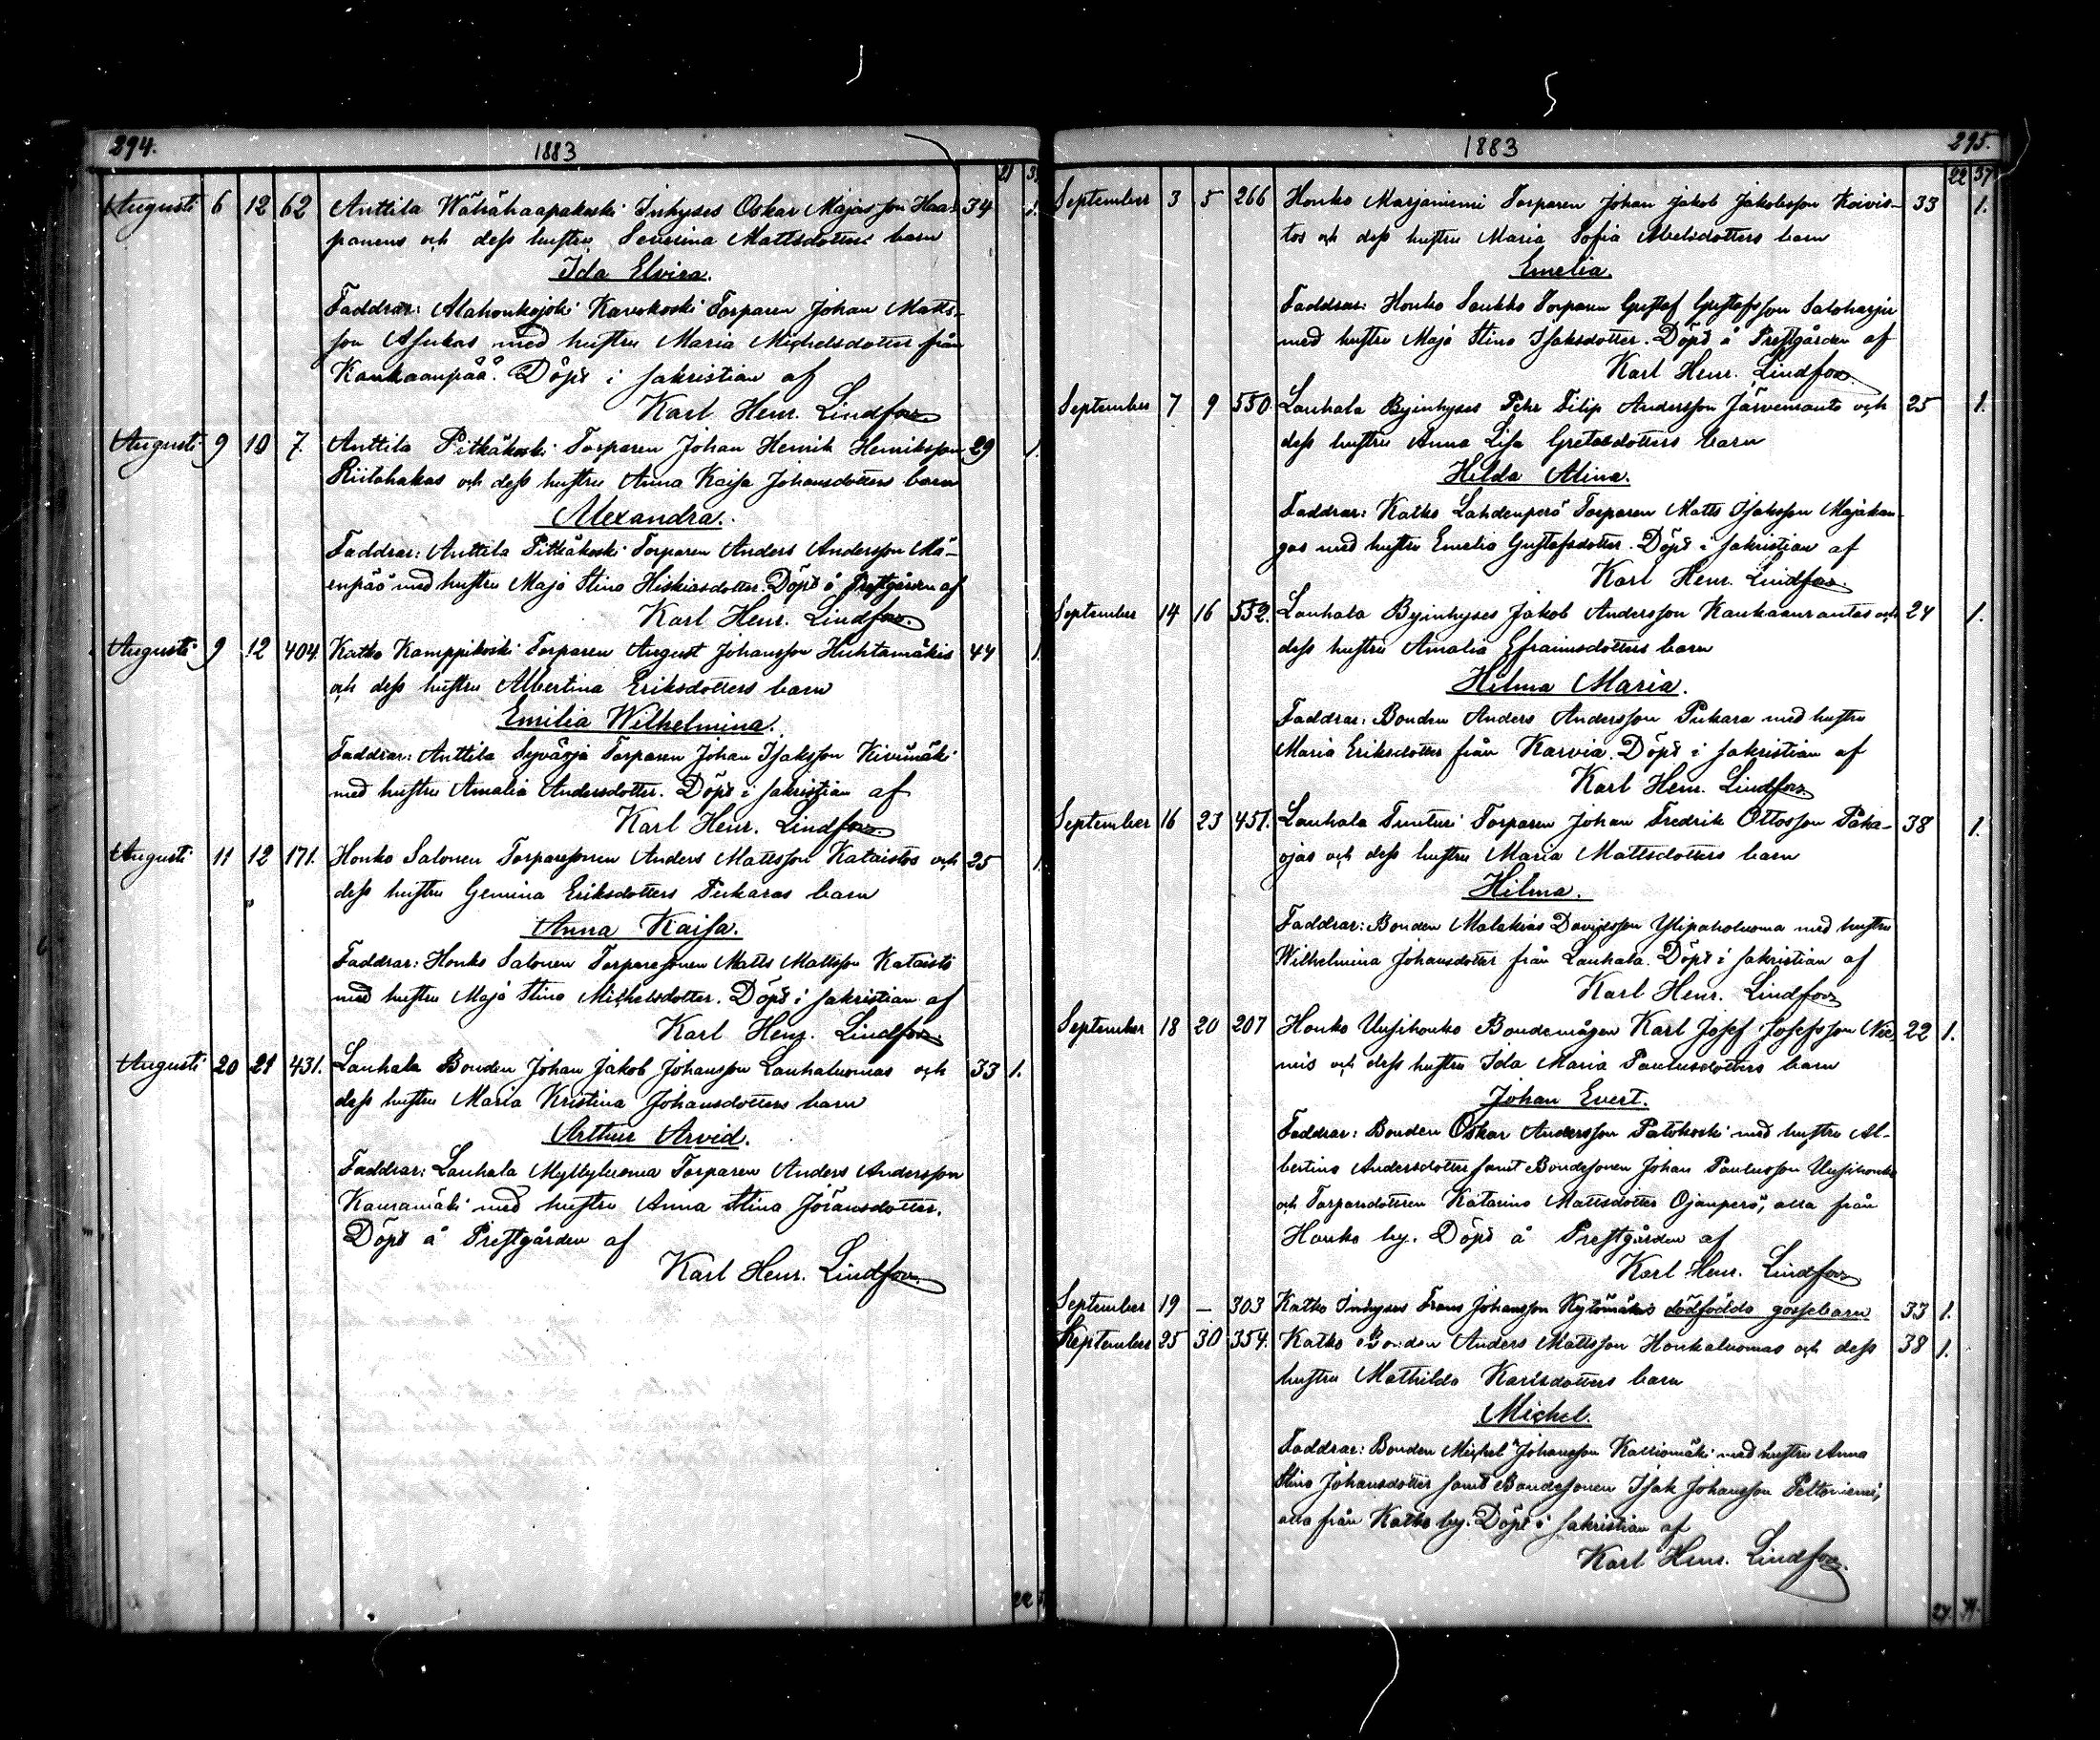 294.
1883
21 3
Augusti 6 12 62 Anttila Wähähaapakoski Inhyses Oskar Majasson Haa- 34 1.
panens och dess hustru Serenina Mattsdotters barn
Ida Elvira.
Faddrar: Alahonkajoki Karvokoski Torparen Johan Matts-
son Asukas med hustru Maria Michelsdotter från
Kankaanpää. Döpt i sakristian af
Karl Henr. Lindfors.
Augusti 9 10 7. Anttila Pitkäkoski Torparen Johan Henrik Henriksson 29 1.
Riilahakas och dess hustru Anna Kaisa Johansdotters barn
Alexandra.
Faddrar: Anttila Pitkäkoski Torparen Anders Andersson Mä-
enpää med hustru Maja Stina Hiskiasdotter. Döpt å Prestgården af
Karl Henr. Lindfors.
Augusti 9 12 404. Katko Kamppikoski Torparen August Johansson Huhtamäkis 44 1.
och dess hustru Albertina Eriksdotters barn
Emilia Wilhelmina.
Faddrar: Anttila Syväoja Torparen Johan Isaksson Kivimäki
med hustru Amalia Andersdotter. Döpt i sakristian af
Karl Henr. Lindfors.
Augusti 11 12 171. Honko Salonen Torparesonen Anders Mattsson Kataistos och 25 1.
dess hustru Gemina Eriksdotters Pukaras barn
Anna Kaisa.
Faddrar: Honko Salonen Torparesonen Matts Mattsson Kataisto
med hustru Maja Stina Michelsdotter. Döpt i sakristian af
Karl Henr. Lindfors.
Augusti 20 21 431. Lauhala Bonden Johan Jakob Johansson Lauhaluomas och 33 1.
dess hustru Maria Kristina Johansdotters barn
Arthur Arvid.
Faddrar: Lauhala Myllyluoma Torparen Anders Andersson
Kauramäki med hustru Anna Stina Jöransdotter.
Döpt å Prestgården af
Karl Henr. Lindfors.
22
295.
1883
22 37
September 3 5 266 Honko Marjaniemi Torparen Johan Jakob Jakobsson Koivis- 33 1.
tos och dess hustru Maria Sofia Abelsdotters barn
Emelia.
Faddrar: Honko Saukko Torparen Gustaf Gustafsson Saloharju
med hustru Maja Stina Isaksdotter. Döpt å Prestgården af
Karl Henr. Lindfors.
September 7 9 550. Lauhala Byinhyses Pehr Filip Andersson Järvenranta och 25 1.
dess hustru Anna Lisa Gretasdotters barn
Hilda Alina.
Faddrar: Katko Lahdenperä Torparen Matts Isaksson Majakan-
gas med hustru Emelia Gustafsdotter. Döpt i sakristian af
Karl Henr. Lindfors.
September 14 16 552. Lauhala Byinhyses Jakob Andersson Kankaanrantas och 24 1.
dess hustru Amalia Efraimsdotters barn
Hilma Maria.
Faddrar: Bonden Anders Andersson Pukara med hustru
Maria Eriksdotter från Karvia. Döpt i sakristian af
Karl Henr. Lindfors
September 16 23 451. Lauhala Tunturi Torparen Johan Fredrik Ottosson Paha- 38 1.
ojas och dess hustru Maria Mattsdotters barn
Hilma.
Faddrar: Bonden Malakias Davidsson Ylipaholuoma med hustru
Wilhelmina Johansdotter från Lauhala. Döpt i sakristian af
Karl Henr. Lindfors
September 18 20 207 Honko Uusihonko Bondemågen Karl Josef Josefsson Nie- 22 1.
mis och dess hustru Ida Maria Paulusdotters barn
Johan Evert.
Faddrar: Bonden Oskar Andersson Patokoski med hustru Al-
bertina Andersdotter samt Bondesonen Johan Paulusson Uusihonko
och Torparedottren Katarina Mattsdotter Ojanperä, alla från
Honko by. Döpt å Prestgården af
Karl Henr. Lindfors
September 19 – 303 Katko Inhyses Frans Johansson Kytömäkis dödfödda gossebarn 33 1.
September 25 30 354. Katko Bonden Anders Mattsson Honkaluomas och dess 38 1.
hustru Mathilda Karlsdotters barn
Michel.
Faddrar: Bonden Michel Johansson Kalliomäki med hustru Anna
Stina Johansdotter samt Bondesonen Isak Johansson Peltoniemi,
alla från Katko by. Döpt i sakristian af
Karl Henr. Lindfors.
27 41.